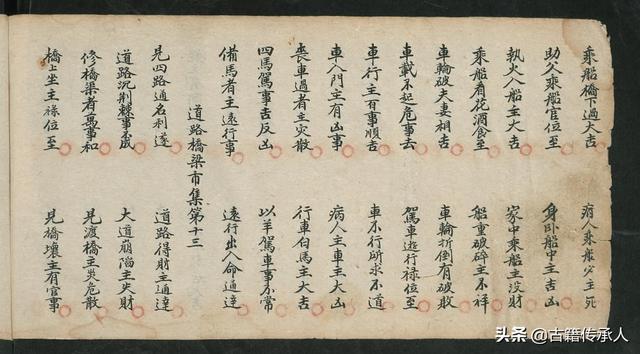 乘船橋下過大吉 病人乘船必主死
助父乘船官位至 身卧船中主吉凶
執火入船主大吉 家中乘船主没財
乘船看花酒食至 船重破碎主不祥
車輪破夫妻相吉 車輪折倒有破敗
車載不起危事去 駕車遊行禄位至
車行主有事順吉 車不行所求不道
車入門主有凶事 病人主車主大凶
喪車過者主灾散 行車白馬主大吉
四馬駕事吉反凶 以羊駕車事不常
備馬者主遠行事 遠行出入命通達
道路橋梁市集第十三
見四路通名利遂 道路得財主通達
道路沉荆棘事成 大道崩陷主失財
修橋渠者萬事和 見渡橋主災危散
橋上坐主禄位至 見橋壞主有官事
头条 @古籍传承人